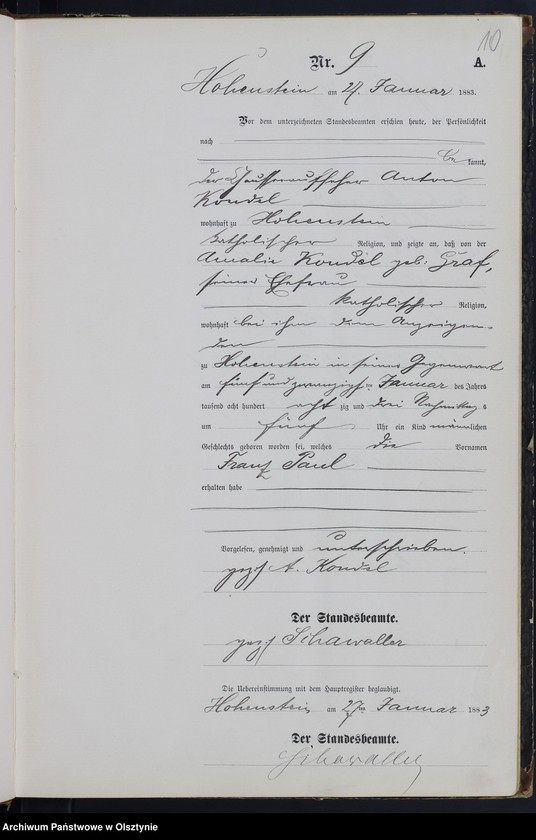 10
Nr. 9 A.
Hohenstein am 27. Januar 1883.
Vor dem unterzeichneten Standesbeamten erschien heute, der Persönlichkeit
nach
be kannt,
der Chausseeaufseher Anton
Kondel
wohnhaft zu Hohenstein
katholischer Religion, und zeigte an, daß von der
Amalie Kondel geb: Graf,
seiner Ehefrau
katholischer Religion,
wohnhaft bei ihm dem Anzeigen-
den
zu Hohenstein in seiner Gegenwart
am fünf und zwanzigsten Januar des Jahres
tausend acht hundert acht zig und drei Nachmittags
um fünf Uhr ein Kind männlichen
Geschlechts geboren worden sei, welches die Vornamen
Franz Paul
erhalten habe
Vorgelesen, genehmigt und unterschrieben.
gez. A. Kondel
Der Standesbeamte.
gez. Schawaller
Die Uebereinstimmung mit dem Hauptregister beglaubigt.
Hohenstein, am 27ten Januar 1883
Der Standesbeamte.
Schawaller
Archiwum Państwowe w Olsztynie